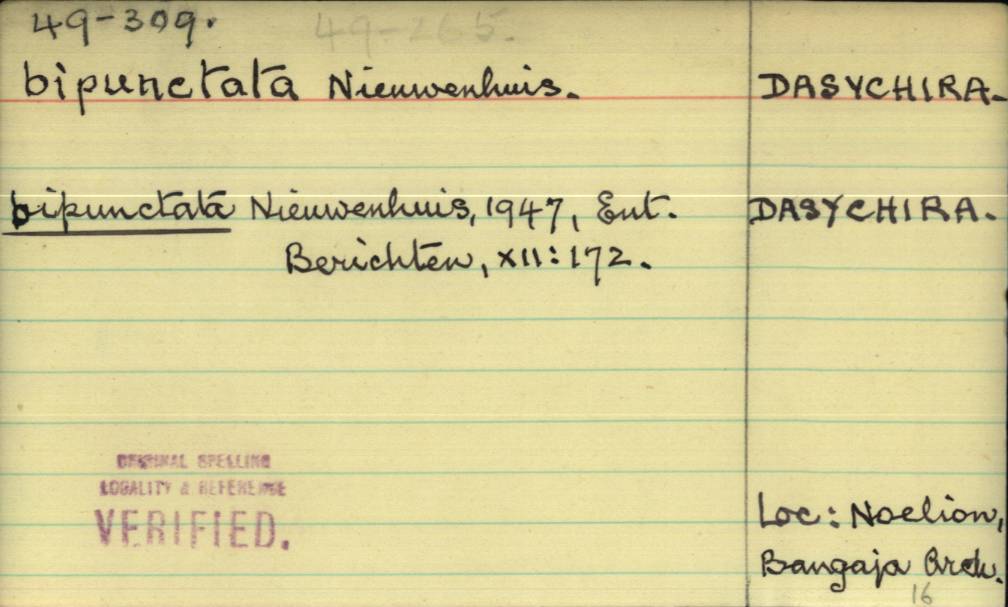 49-309. 49-265.
bipunctata Nieuwenhuis. DASYCHIRA.
bipunctata Nieuwenhuis, 1947, Ent. DASYCHIRA.
Berichten, XII: 172.
ORIGINAL SPELLING
LOCALITY & REFERENCE
VERIFIED.
Loc: Noelion,
Bangaja Arch.
16